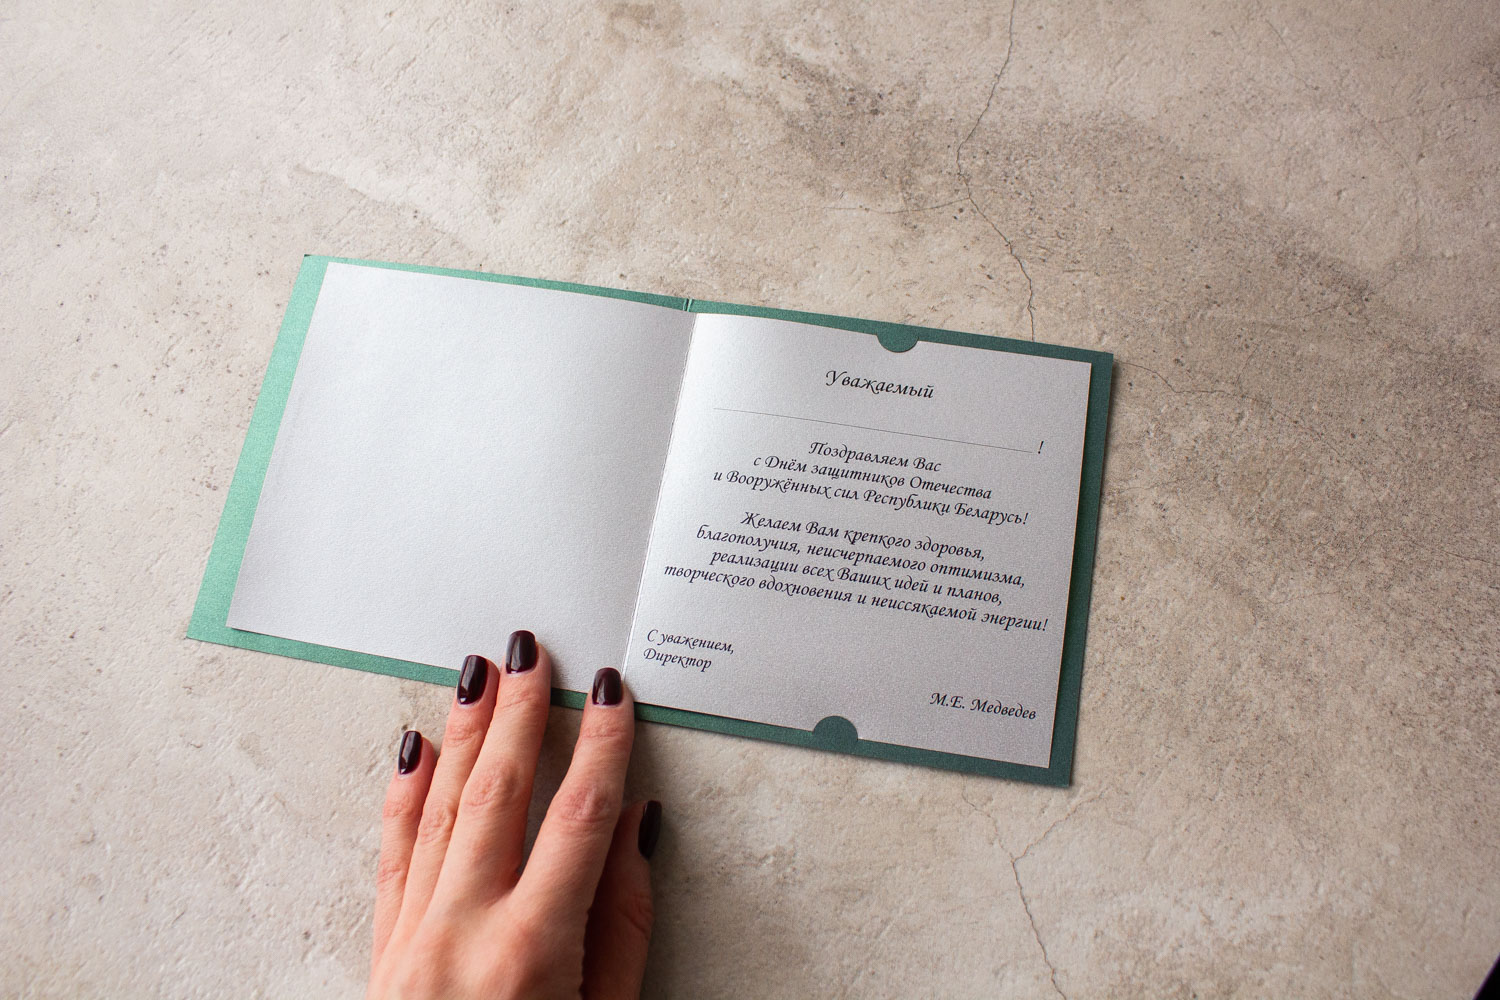 Уважаемый
!
Поздравляем Вас
с Днём защитников Отечества
и Вооружённых сил Республики Беларусь!
Желаем Вам крепкого здоровья,
благополучия, неисчерпаемого оптимизма,
реализации всех Ваших идей и планов,
творческого вдохновения и неиссякаемой энергии!
С уважением,
Директор
М.Е. Медведев